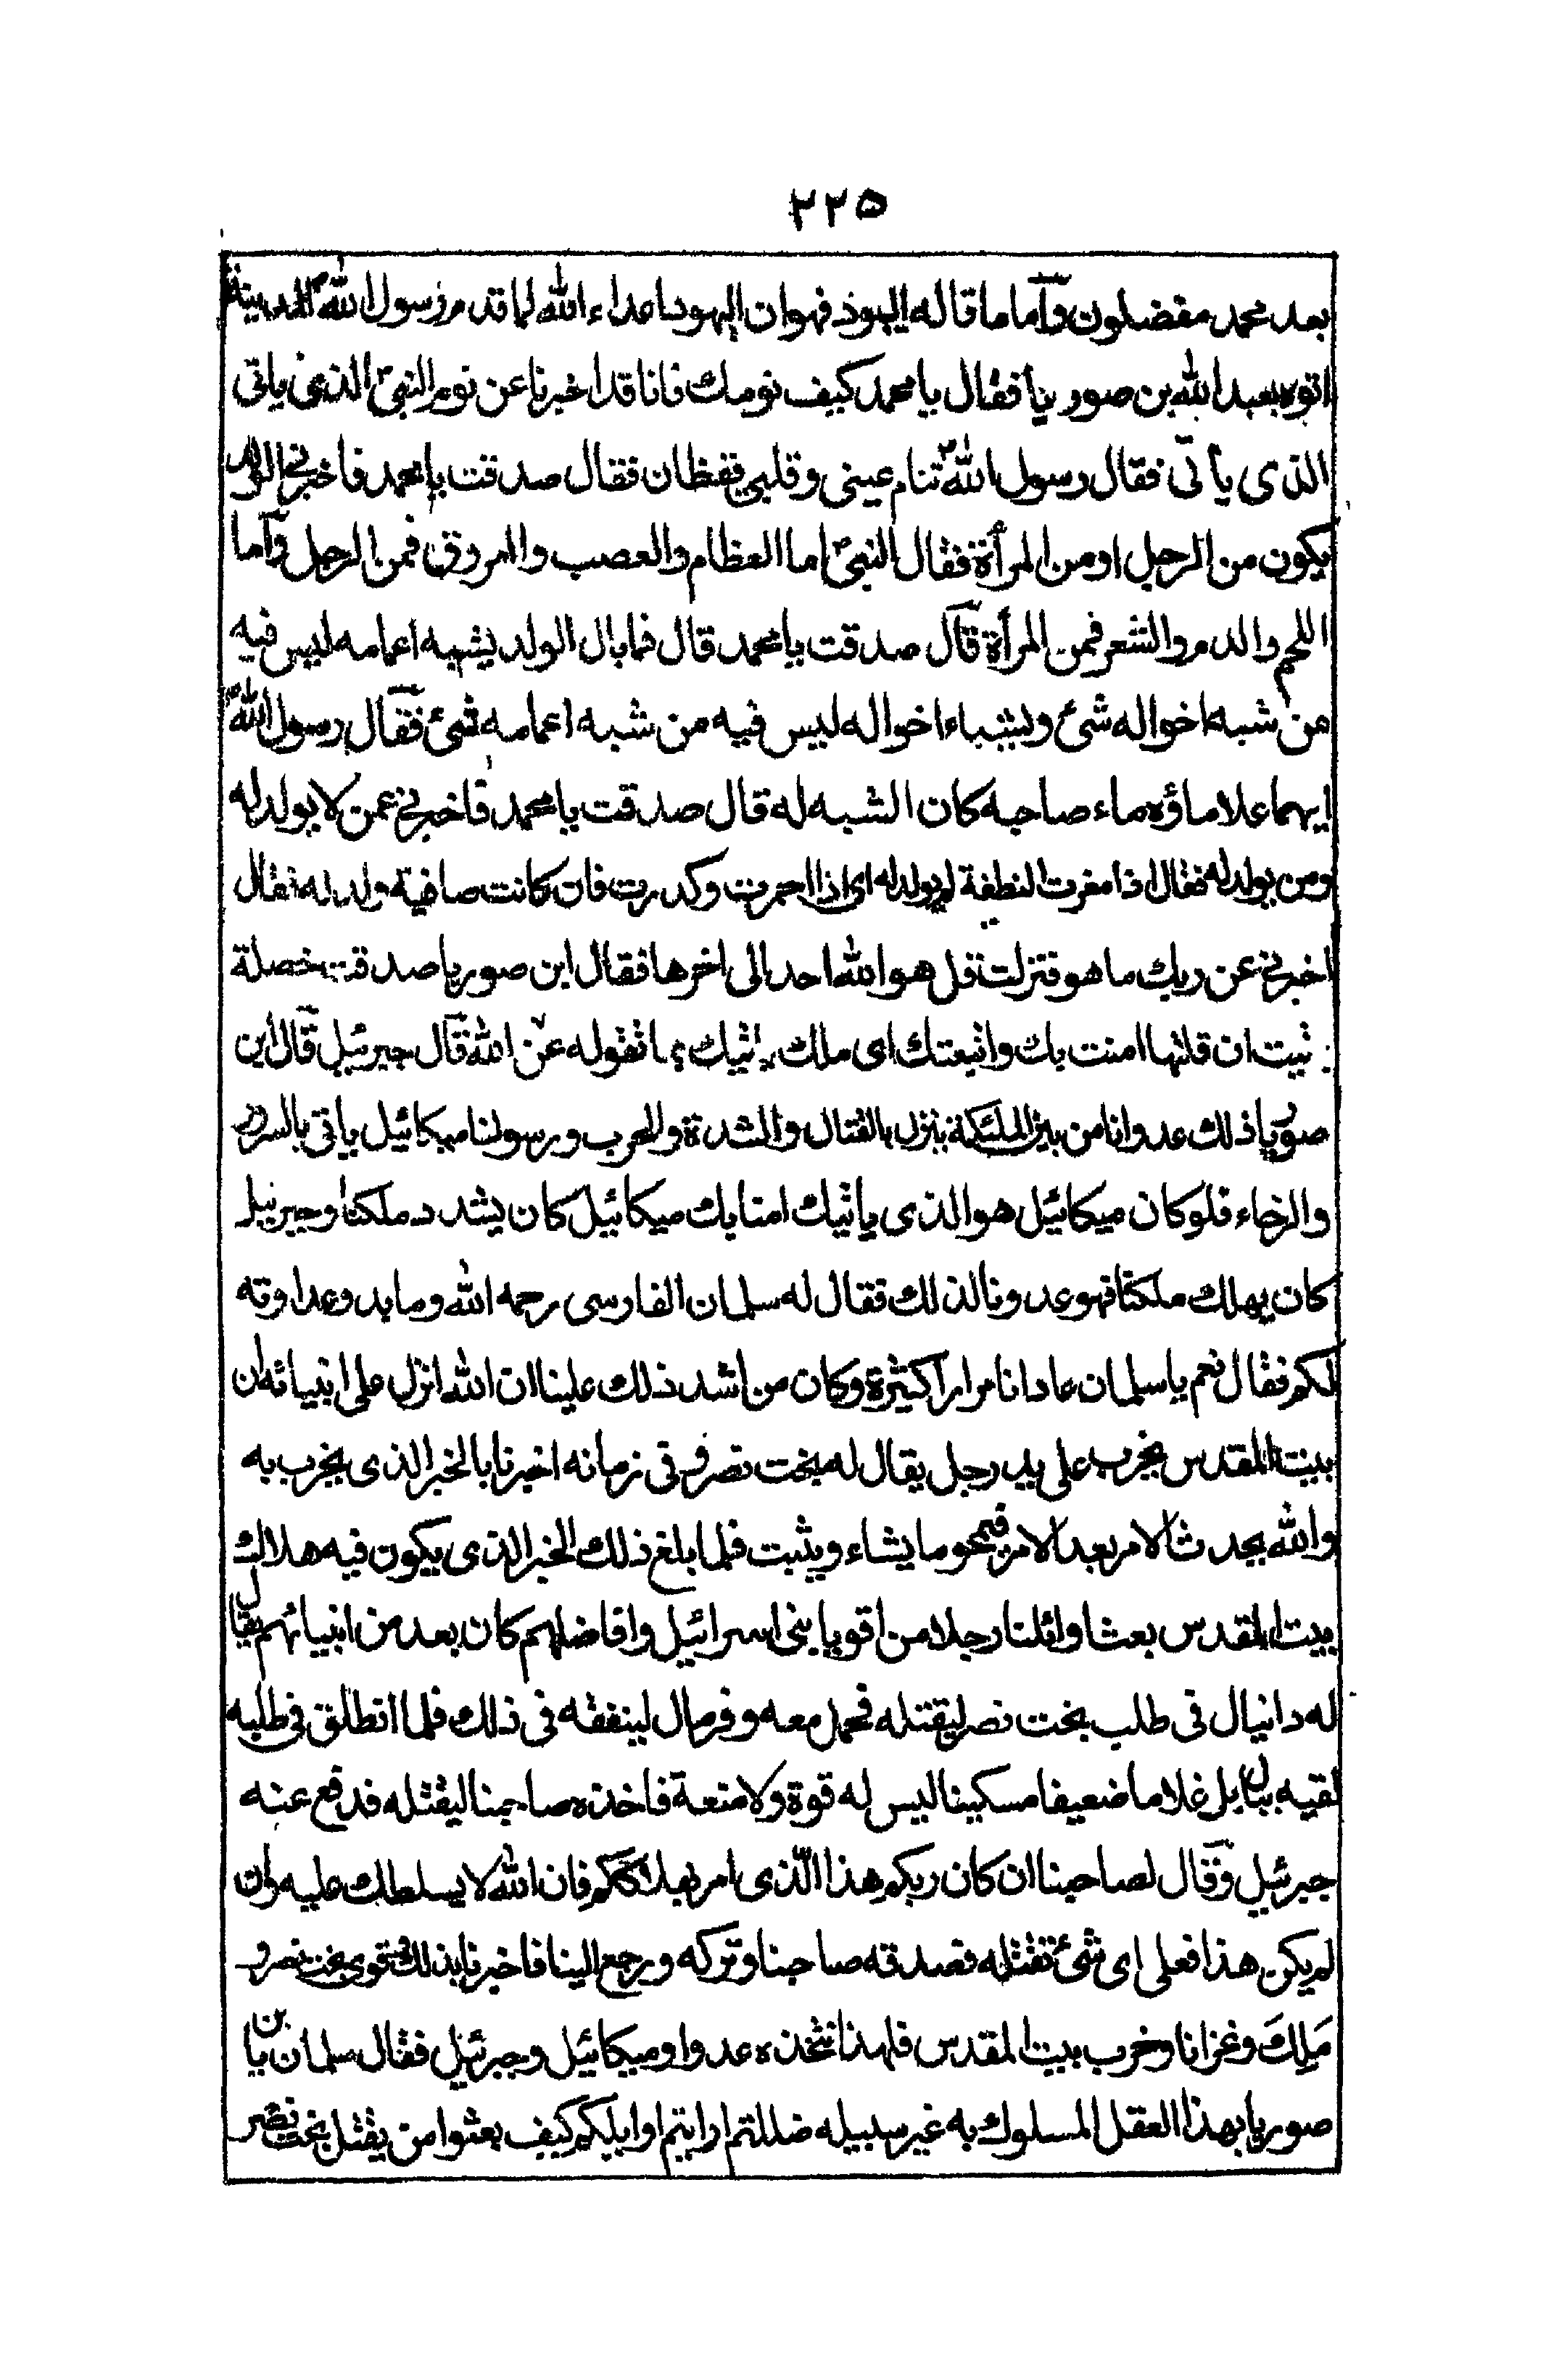 ٢٢٥
بعد محمد مفضلون وآما ما قاله اليهود فهو ان اليهود اعداء الله لما قدم رسول الله ص المدينة
اتوه بعبد الله بن صوريا فقال يا محمد كيف نومك فانا قد اخبرنا عن نوم النبى الذى ياتى
الذى يأتى فقال رسول الله ص تنام عينى وقلبى يقظان فقال صدقت يا محمد فاخبرنى الولد
يكون من الرجل او من المرأة فقال النبى ص اما العظام والعصب والعروق فمن الرجل وآما
اللحم والدم والشعر فمن المرأة قال صدقت يا محمد قال فما بال الولد يشبه اعمامه ليس فيه
من شبه اخواله شئ ويشبه اخواله ليس فيه من شبه اعمامه شئ فقال رسول الله ص
ايهما علا ماؤه ماء صاحبه كان الشبه له قال صدقت يا محمد فاخبرنى عمن لا يولد له
ومن يولد له فقال اذا مغرت النطفة لم يولد له اى اذا احمرت وكدرت فان كانت صافية ولد له فقال
اخبرنى عن ربك ما هو فنزلت قل هو الله احد الى اخرها فقال ابن صوريا صدقت خصلة
بقيت ان قلتها امنت بك واتبعتك اى ملك ياتيك بما تقوله عن الله قال جبرئيل قال ابن
صوريا ذلك عدوانا من بين الملئكة ينزل بالقتال والشدة والحرب ورسولنا ميكائيل ياتى بالسرور
والرخاء فلو كان ميكائيل هو الذى ياتيك امنا بك ميكائيل كان يشدد ملكنا وجبرئيل
كان يهلك ملكنا فهو عدونا لذلك فقال له سلمان الفارسى رحمه الله وما بدو عداوته
لكم فقال نعم يا سلمان عادانا مرارا كثيرة وكان من اشد ذلك علينا ان الله انزل على انبيائه ان
بيت المقدس يخرب على يد رجل يقال له بخت نصر وفى زمانه اخبرنا بالخبر الذى يخرب به
والله يحدث الامر بعد الامر فيمحو ما يشاء ويثبت فلما بلغ ذلك الخبر الذى يكون فيه هلاك
بيت المقدس بعث اوائلنا رجلا من اقويا بنى اسرائيل وافاضلهم كان بعد من انبيائهم يقال
له دانيال فى طلب بخت نصر ليقتله فحمل معه وقر مال لينفقه فى ذلك فلما انطلق فى طلبه
لقيه ببابل غلاما ضعيفا مسكينا ليس له قوة ولا منعة فاخذه صاحبنا ليقتله فدفع عنه
جبرئيل وقال لصاحبنا ان كان ربكم هذا الذى امر بهلاككم فان الله لا يسلطك عليه وان
لم يكن هذا فعلى اى شئ تقتله فصدقه صاحبنا وتركه ورجع الينا فاخبرنا بذلك فقوى بخت نصر و
مَلِكَ وغزانا وخرب بيت المقدس فلهذا نتخذه عدوا وميكائيل وجبرئيل فقال سلمان يا بن
صوريا بهذا العقل المسلوك به غير سبيله ضللتم ارايتم اوايلكم كيف بعثوا من يقتل بخت نصر